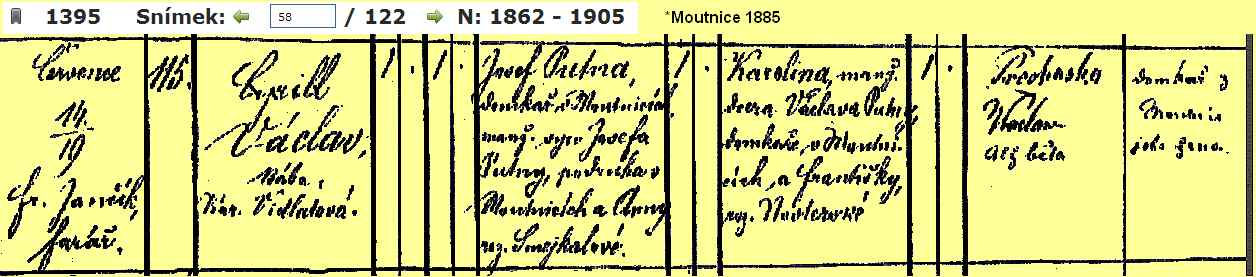 1395 Snímek: 58 / 122 N: 1862 - 1905 *Moutnice 1885
Července
14.
19
Fr. Jančík,
farář.
115.
Cyrill
Václav.
bába:
Kar. Vidlatová.
1
1
Josef Putna,
domkař v Moutnicích
manž. syn Josefa
Putny, podruha v
Moutnicích a Anny
roz. Smejkalové.
1
Karolina, manž.
dcera Václava Putny,
domkaře v Moutni-
cích, a Františky,
roz.
1
Prochaska
Václav
Alžběta
domkař z
Moutnic
jeho žena.